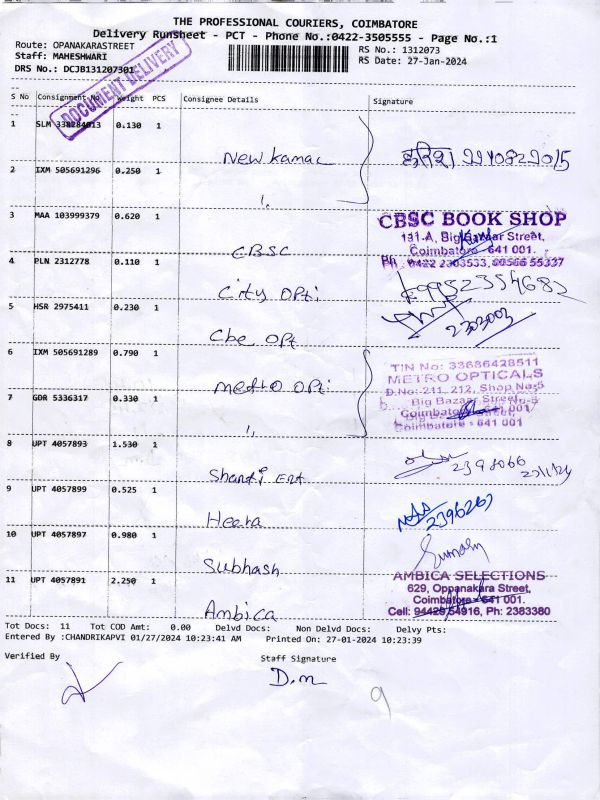 THE PROFESSIONAL COURIERS, COIMBATORE
Delivery Runsheet - PCT - Phone No.:0422-3505555 - Page No.:1
Route: OPANAKARASTREET
RS No.: 1312073
Staff: MAHESHWARI
RS Date: 27-Jan-2024
DRS No.: DCJB131207301
DOCUMENT DELIVERY
S No Consignment No Weight PCS Consignee Details Signature
1 SLM 338284013 0.130 1
New Kamal
हरिश 2015
2 IXM 505691296 0.250 1
3 MAA 103999379 0.620 1
CBSC BOOK SHOP
131-A, Big Bazaar Street,
Coimbatore - 641 001.
Ph : 0422 2303533, 55337
CBSC
4 PLN 2312778 0.110 1
City Opti
5 HSR 2975411 0.230 1
2303003
Cbe Opt
6 IXM 505691289 0.790 1
TIN No: 33686428511
METRO OPTICALS
D.No: 211, 212, Shop No:5
Big Bazaar Street,
Coimbatore - 641 001
Metro Opti
7 GDR 5336317 0.330 1
Coimbatore - 641 001
8 UPT 4057893 1.530 1
2398066
Shanti Ent
9 UPT 4057899 0.525 1
2396267
Heera
10 UPT 4057897 0.980 1
Subhash
11 UPT 4057891 2.250 1
AMBICA SELECTIONS
629, Oppanakara Street,
Coimbatore - 641 001.
Cell: 94426 54916, Ph: 2383380
Ambica
Tot Docs: 11 Tot COD Amt: 0.00 Delvd Docs: Non Delvd Docs: Delvy Pts:
Entered By :CHANDRIKAPVI 01/27/2024 10:23:41 AM Printed On: 27-01-2024 10:23:39
Verified By Staff Signature
D.m
9